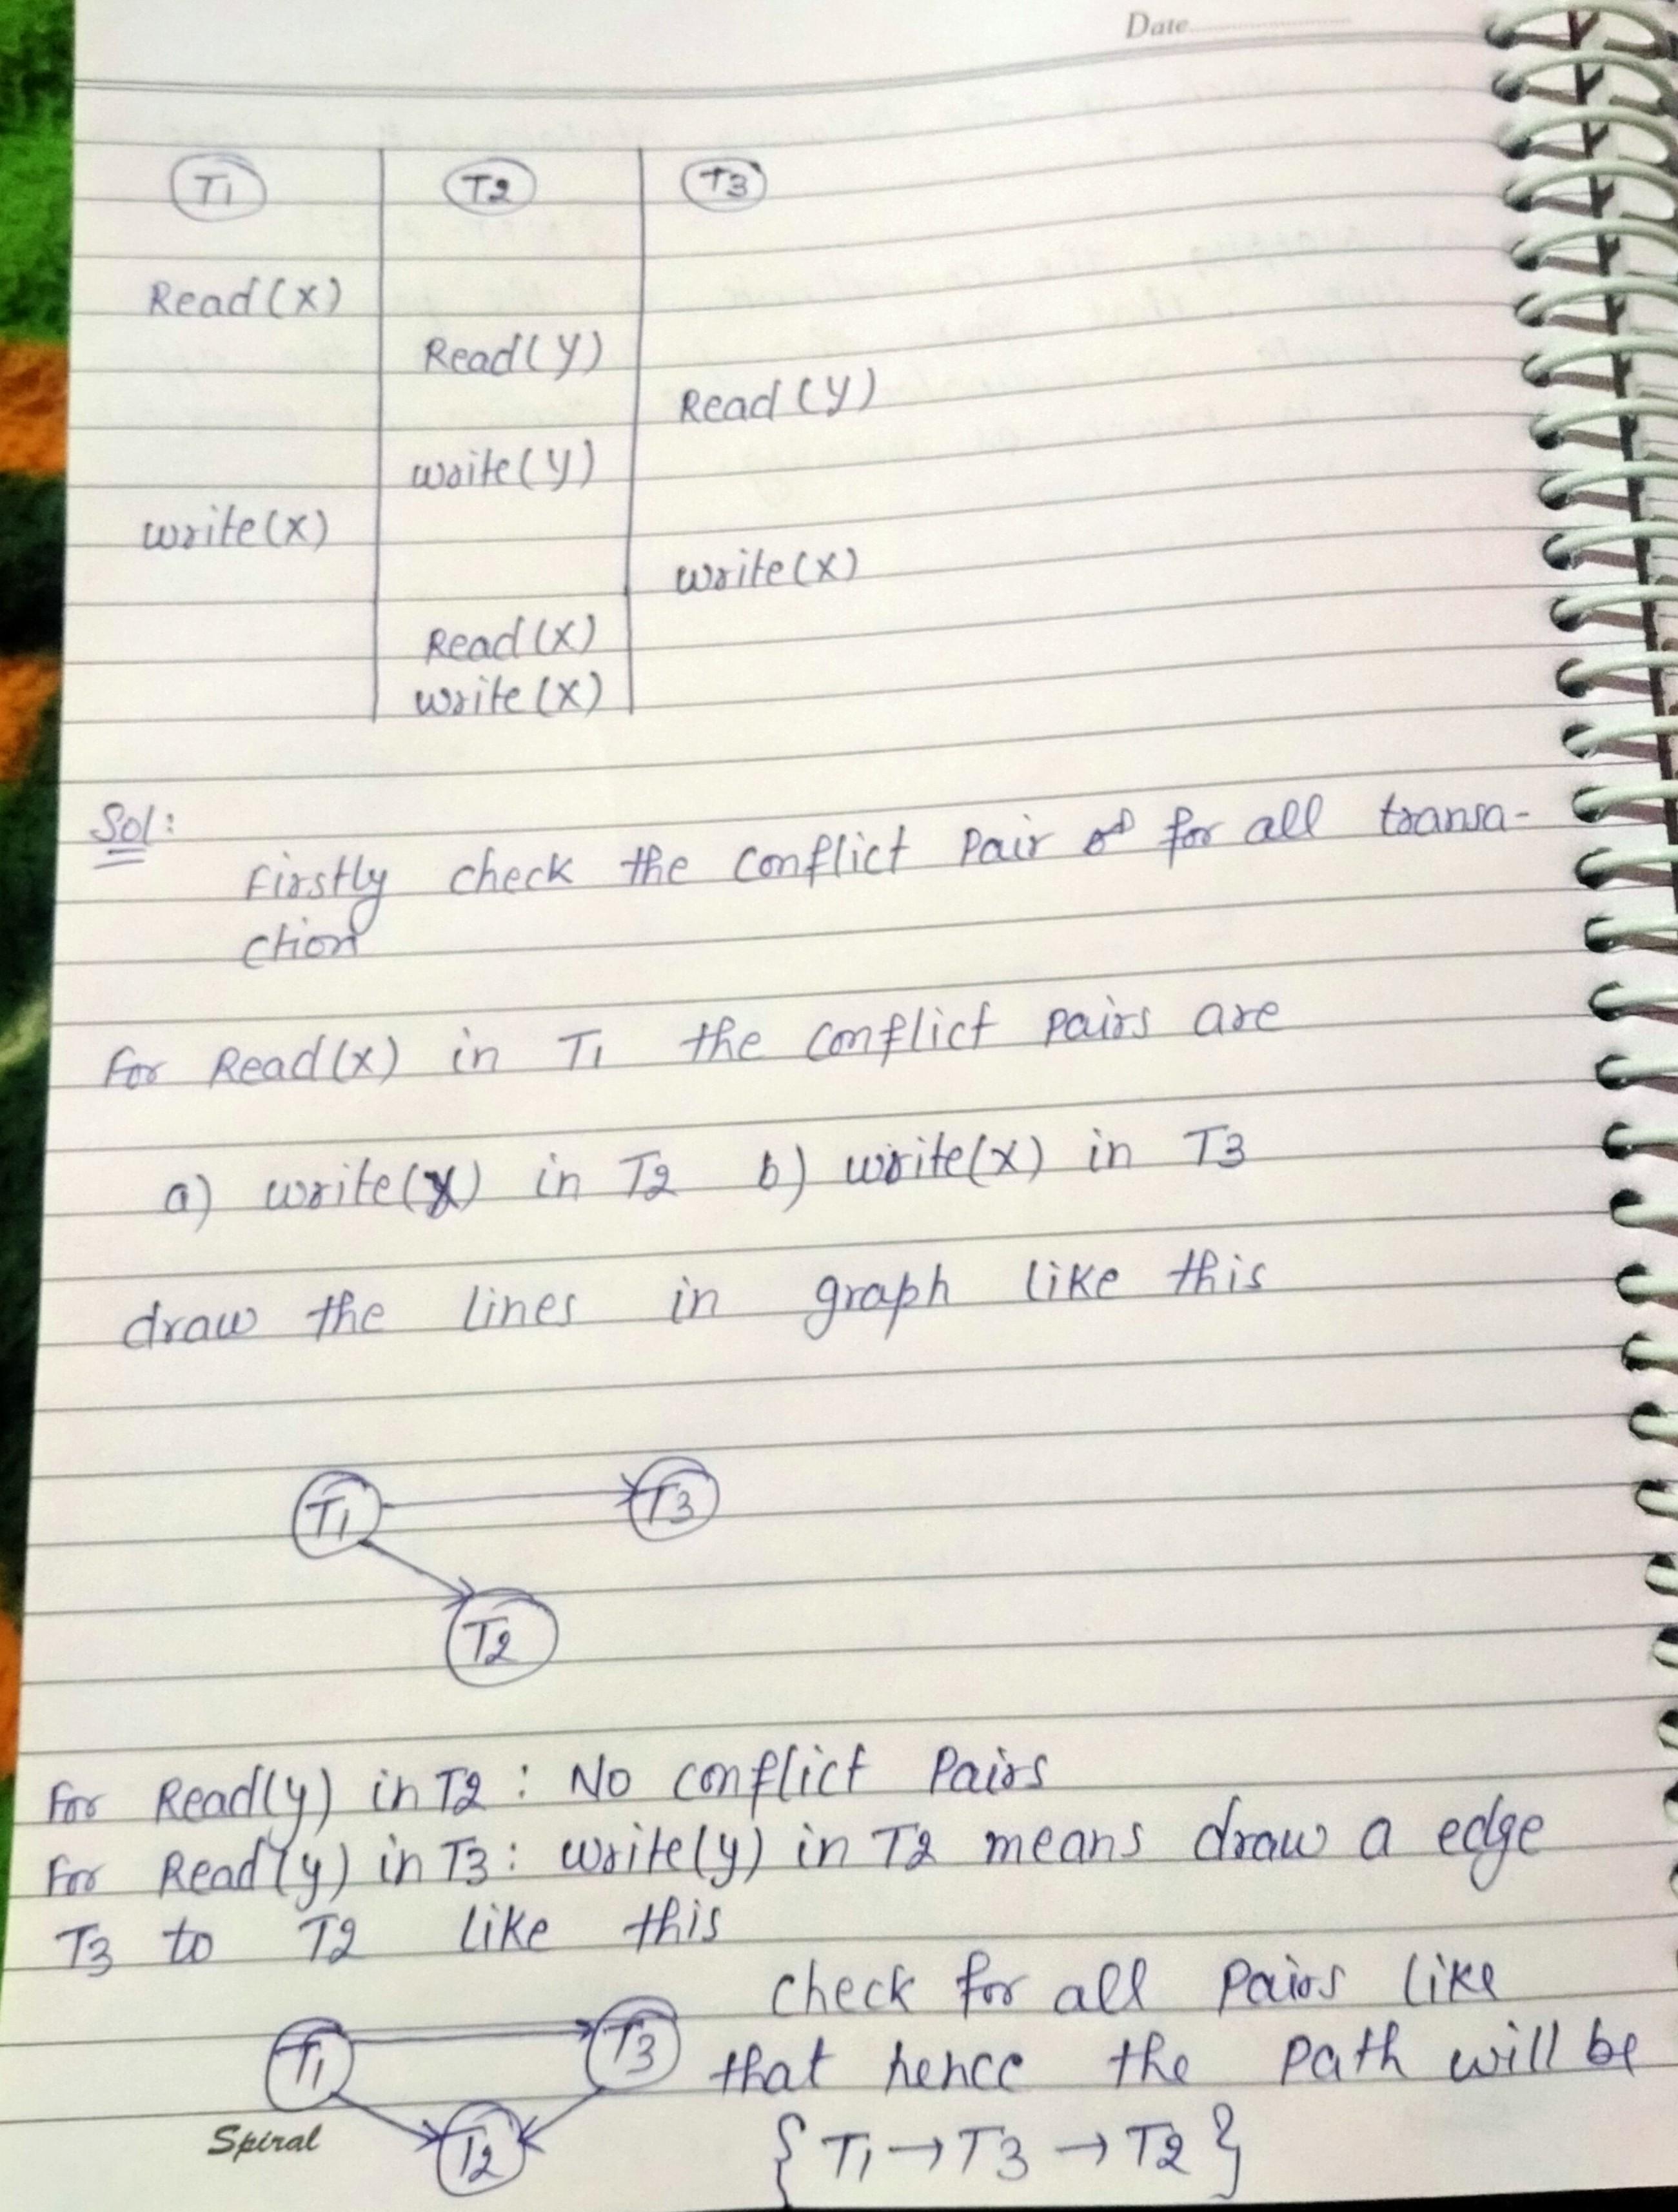 Date
T1 T2 T3
Read(X)
Read(Y)
Read(Y)
write(y)
write(x)
write(x)
Read(X)
write(X)
Sol:
Firstly check the conflict Pair for all transa-
ction
For Read(x) in T1 the conflict pairs are
a) write(x) in T2 b) write(x) in T3
draw the lines in graph like this
T1 T3
T2
For Read(y) in T2 : No conflict Pairs
For Read(y) in T3 : write(y) in T2 means draw a edge
T3 to T2 like this
check for all Pairs like
T1 T3 that hence the path will be
Spiral T2 { T1 → T3 → T2 }